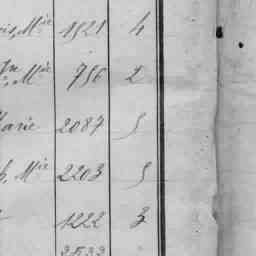 Mie 1521 4
Mie 756 2
Marie 2087 5
Mie 2203 5
1222 3